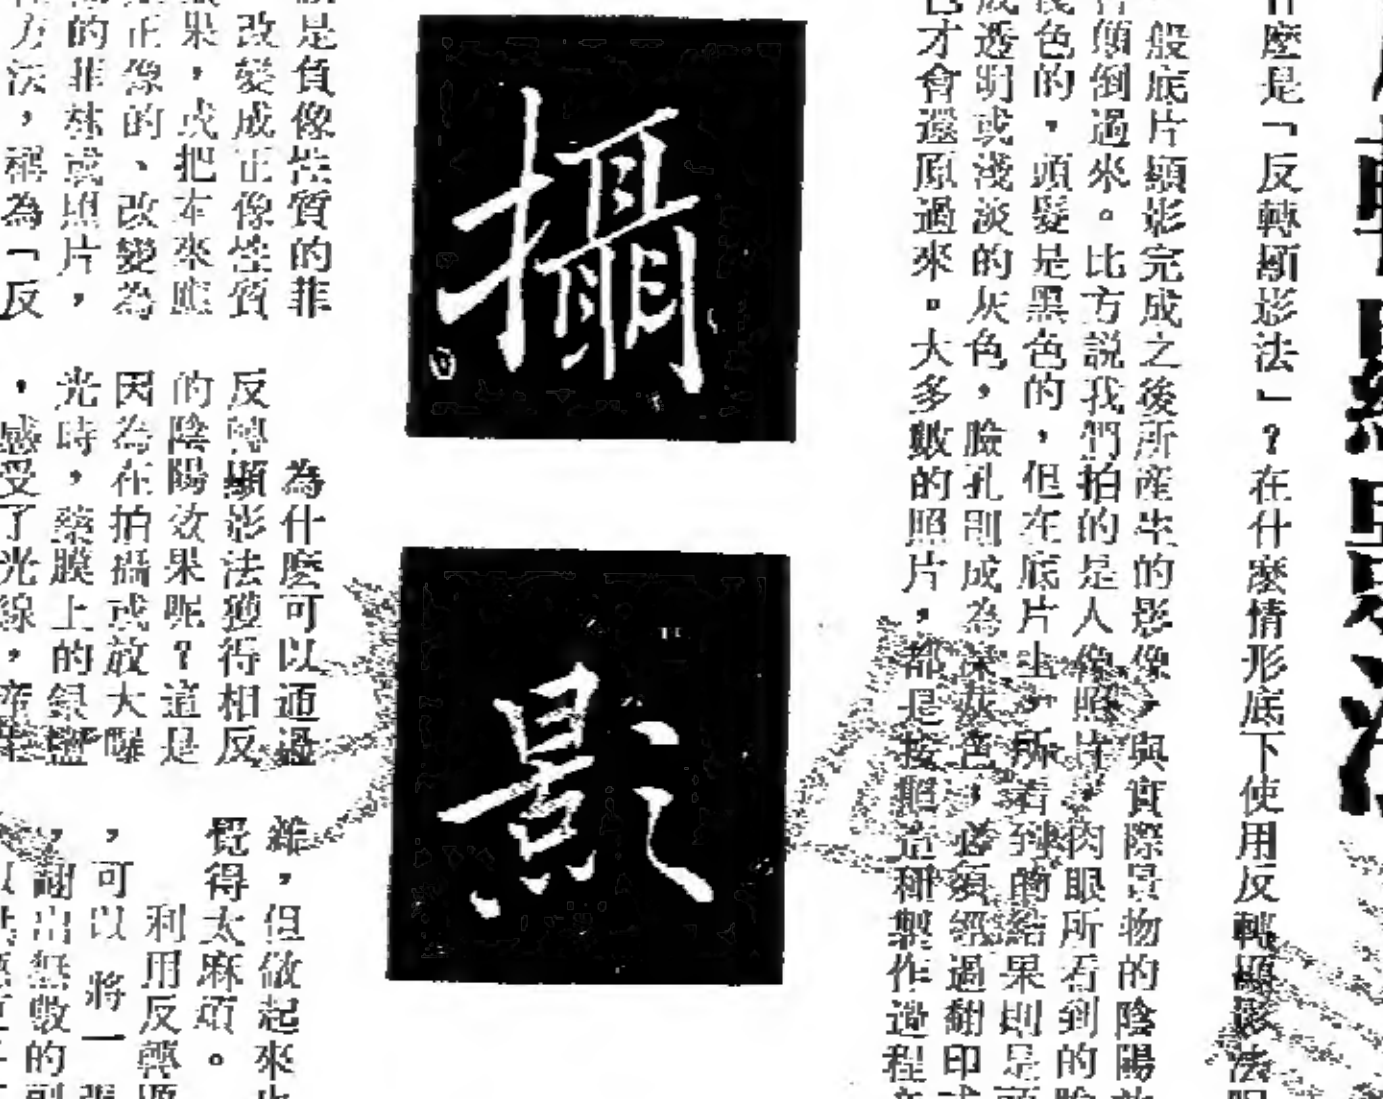 什麼是「反轉顯影法」？在什麼情形底下使用反轉顯影法呢
般底片顯影完成之後所產生的影像，與實際景物的陰陽
顛倒過來。比方說我們拍的是人像照片，肉眼所看到的臉
淺色的，頭髮是黑色的，但在底片上，所看到的結果則是頭
成透明或淺淡的灰色，臉孔則成為深灰色，必須經過翻印或
色才會還原過來。大多數的照片，都是按照這種製作過程
攝
影
是負像性質的菲
改變成正像性質
果，或把本來應
正像的、改變為
的菲林或照片，
方法，稱為「反
為什麼可以通過
反轉顯影法獲得相反
的陰陽效果呢？這是
因為在拍攝或放大曝
光時，藥膜上的銀鹽
，感受了光線，產生
雜，但做起來也
覺得太麻煩。
利用反轉顯
，可以將一張
，翻出無數的副